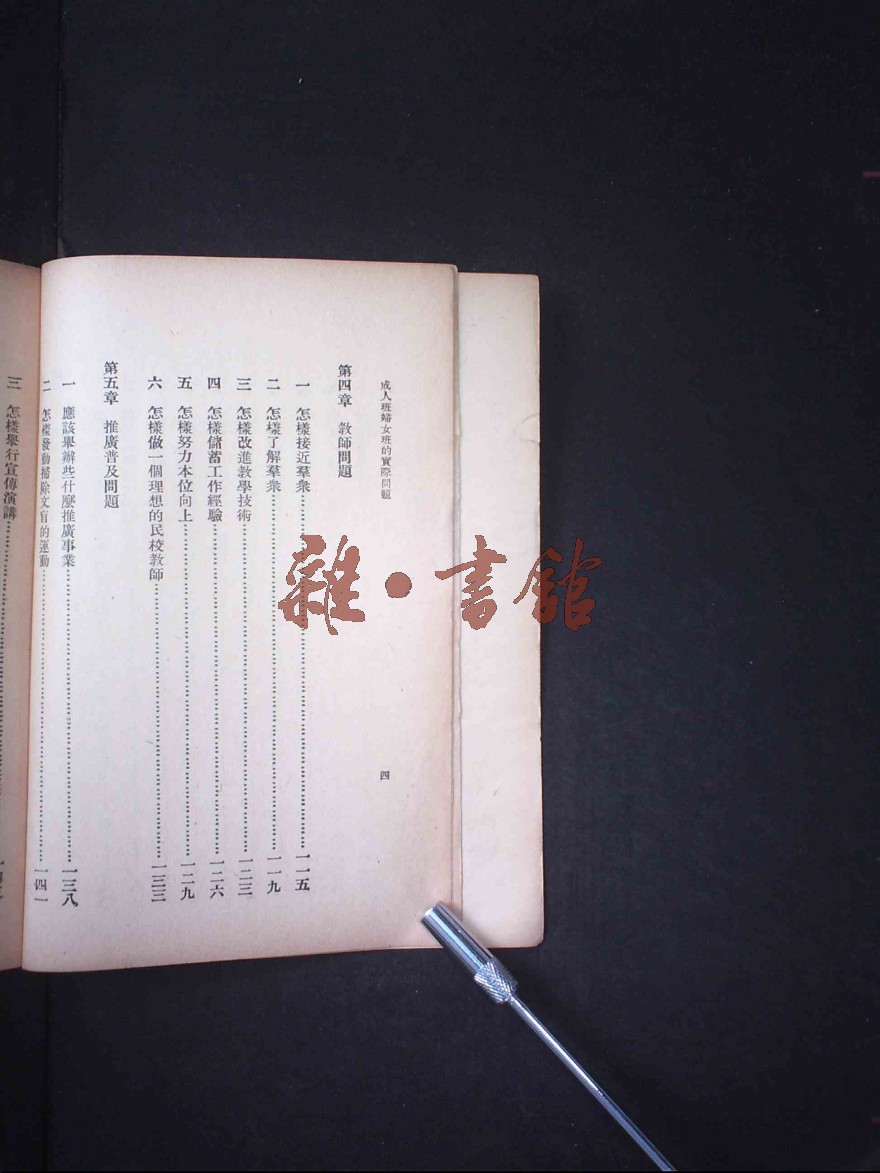 成人班婦女班的實際問題
四
第四章 教師問題
一 怎樣接近羣衆……一一五
二 怎樣了解羣衆……一一九
三 怎樣改進教學技術……一二三
四 怎樣儲蓄工作經驗……一二六
五 怎樣努力本位向上……一二九
六 怎樣做一個理想的民校教師……一三三
第五章 推廣普及問題
一 應該舉辦些什麽推廣事業……一三八
二 怎樣發動掃除文盲的運動……一四一
三 怎樣舉行宣傳演講……
雜·書館